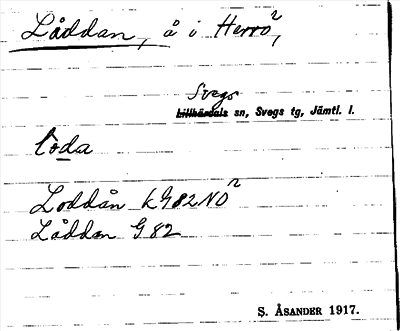 Låddan, å i Herrö,
Svegs
Lillhärdals sn, Svegs tg, Jämtl. l.
Loddån k G82NO
Låddan G 82
S. ÅSANDER 1917.